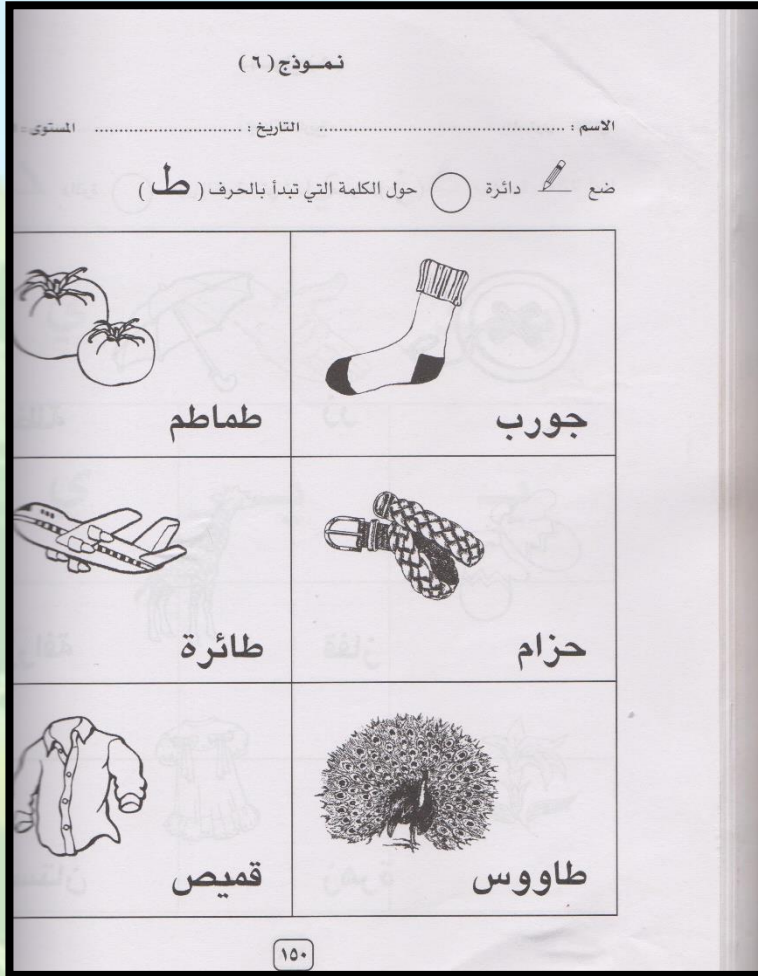 نمـوذج ( ٦ )
الاسم : ................................................ التاريخ : ............................ المستوى :
ضع دائرة حول الكلمة التي تبدأ بالحرف ( ط )
جورب طماطم
حزام طائرة
طاووس قميص
١٥٠